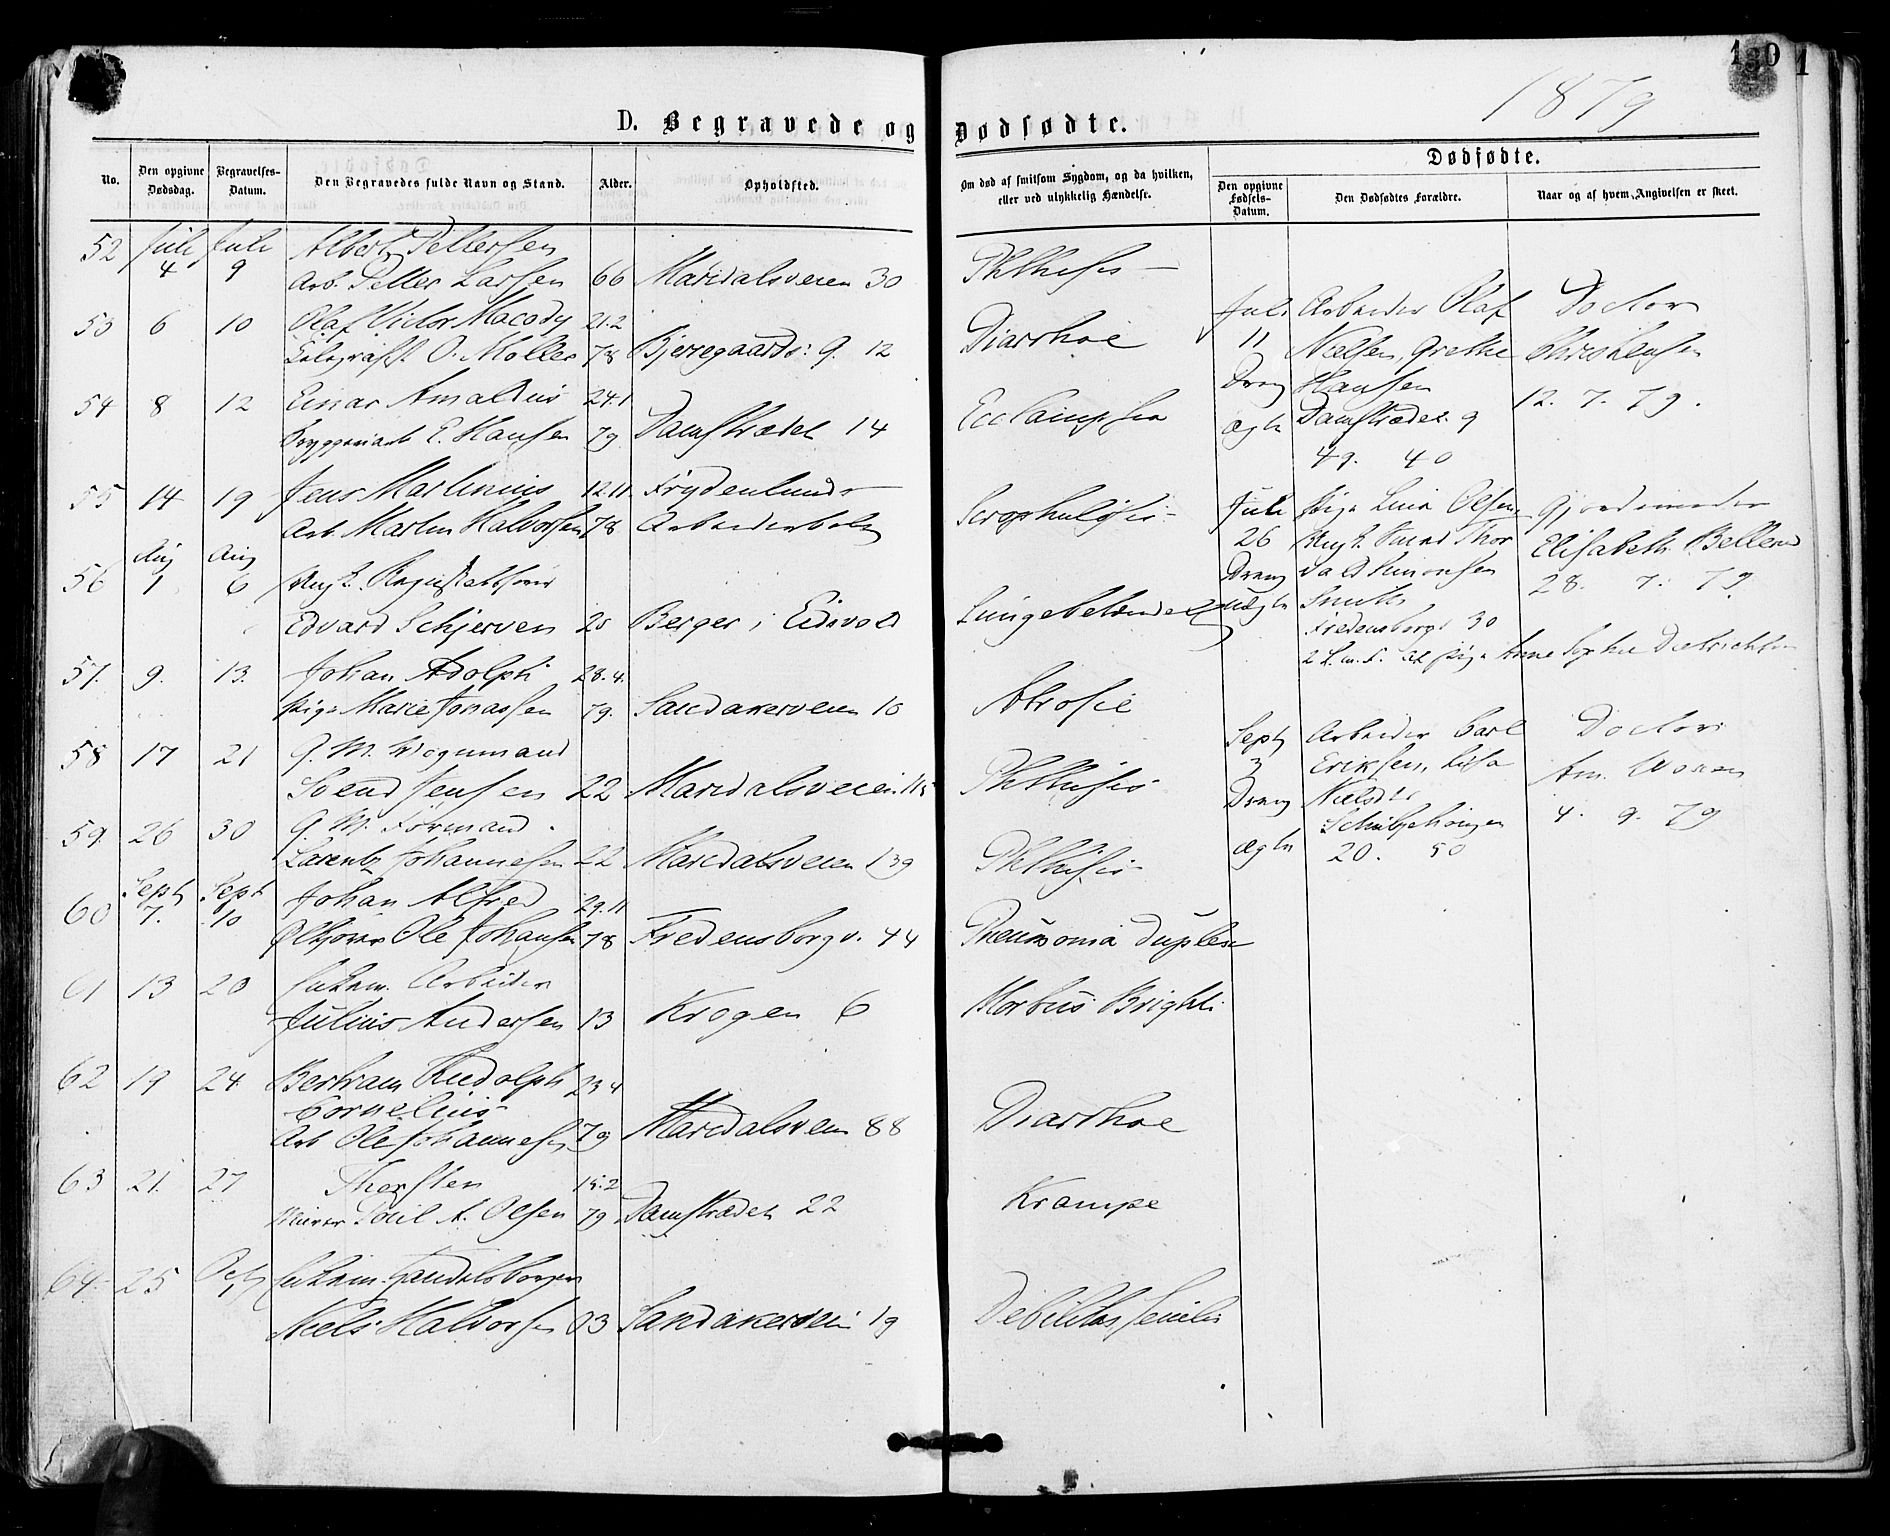 130 1
1879
D. Begravede og Dødfødte.
No. Den opgivne Dødsdag. Begravelses-Datum. Den Begravedes fulde Navn og Stand. Alder. Opholdsted. Om død af smitsom Sygdom, og da hvilken, eller ved ulykkelig Hændelse. Dødfødte. Den opgivne Fødsels-Datum. Den Dødfødtes Forældre. Naar og af hvem, Angivelsen er skeet.
52 Juli 4 Juli 9 Albert Pettersen
Arb. Petter Larsen 66 Maridalsveien 30 Phthisis
53 6 10 Olaf Victor Macody 21.2
O. Møller 78 Bjerregaards: g. 12 Diarrhoe
54 8 12 Einar Amaldus 24.1
E. Hansen 79 Damstrædet 14 Ecclampsia
55 14 19 Jens Martinius 12.11 Frydenlunds
Arb. Martin Halvorsen 78 Arbeiderbolig Scrophulosis
56 Aug 1 Aug 6 Ungk.
Edvard Schjerven 20 Berger i Eidsvold Lungebetændelse
57. 9. 13. Johan Adolph 28.4.
Pige Marie Jonassen 79. Sandakerveien 10 Atrofie
58 17 21 G. M. Vognmand
Svend Jensen 22 Maridalsveien 115 Phthisis
59. 26 30 G. M. Formand
Larentz Johannesen 22 Maridalsveien 139 Phthisis
60 Sept 7. Sept 10 Johan Alfred 29.11
Ole Johansen 78 Fredensborgv. 44 Pneumonia duplex
61 13 20 Enkem. Arbeider
Julius Andersen 13 Krogen 6 Morbus Brighti
62 19 24 Bertram Rudolph 23.4
Cornelius
Arb Ole Johannesen 79 Maridalsveien 88 Diarrhoe
63 21. 27 Thorsten 15.2
Murer A. Olsen 79 Damstrædet 22 Krampe
64 25 Oct 1 Enkem. Handelsborger
Niels Halvorsen 83 Sandakerveien 19 Debilitas senilis
Juli Arbeider Olaf Doctor
11 Nielsen, Grethe Christensen
Dreng Hansen 12. 7. 79.
ægte Damstrædet 9
49. 40
Juli Pige Lina Olsen Gjordemoder
26 Ungk. Thor Elisabeth
Dreng vald Simonsen 28. 7. 79
uægte Smith
Fredensborgv 30
2 L. m. F. Pige Anne Sophie Dietrichsen
Sept Arbeider Carl Doctor
3 Eriksen, Lisa Am.
Dreng Nielsdtr 4. 9. 79
ægte
20. 50